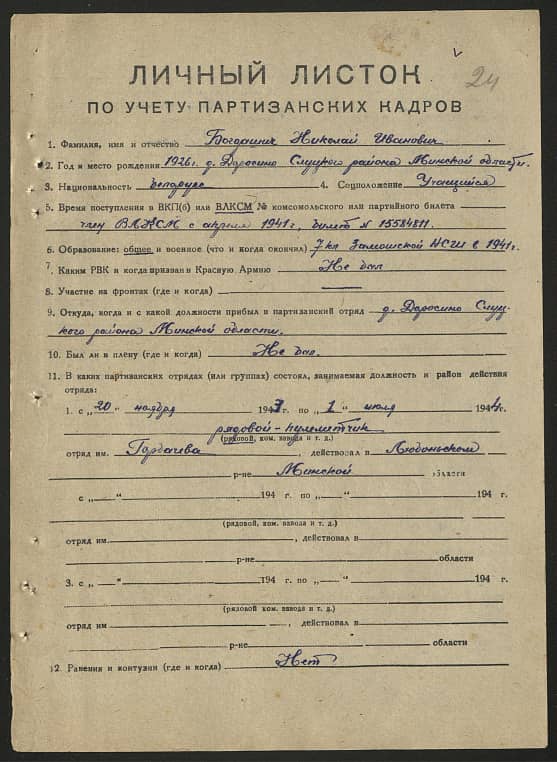 24
ЛИЧНЫЙ ЛИСТОК
ПО УЧЕТУ ПАРТИЗАНСКИХ КАДРОВ
1. Фамилия, имя и отчество Богданович Николай Иванович
2. Год и место рождения 1926 г. д. Доросино Слуцкого района Минской области.
3. Национальность беларус 4. Соцположение Учащийся
5. Время поступления в ВКП(б) или ВЛКСМ № комсомольского или партийного билета
член ВЛКСМ с апреля 1941 г., билет № 15584811.
6. Образование: общее и военное (что и когда окончил) 7 кл НСШ в 1941 г.
7. Каким РВК и когда призван в Красную Армию Не был
8. Участие на фронтах (где и когда) —
9. Откуда, когда и с какой должности прибыл в партизанский отряд д. Доросино Слуц-
кого района Минской области.
10. Был ли в плену (где и когда) Не был.
11. В каких партизанских отрядах (или группах) состоял, занимаемая должность и район действия
отряда:
1. с „20“ ноября 1943 г. по „1“ июля 1944 г.
рядовой-пулеметчик
(рядовой, ком. взвода и т. д.)
отряд им. Горбачева, действовал в Любаньском
р-не Минской области
с „—“ 194 г. по „—“ 194 г.
(рядовой, ком. взвода и т. д.)
отряд им. , действовал в
р-не области
3. с „—“ 194 г. по „—“ 194 г.
(рядовой ком. взвода и т. д.)
отряд им , действовал в
р-не области
12. Ранения и контузии (где и когда) Нет